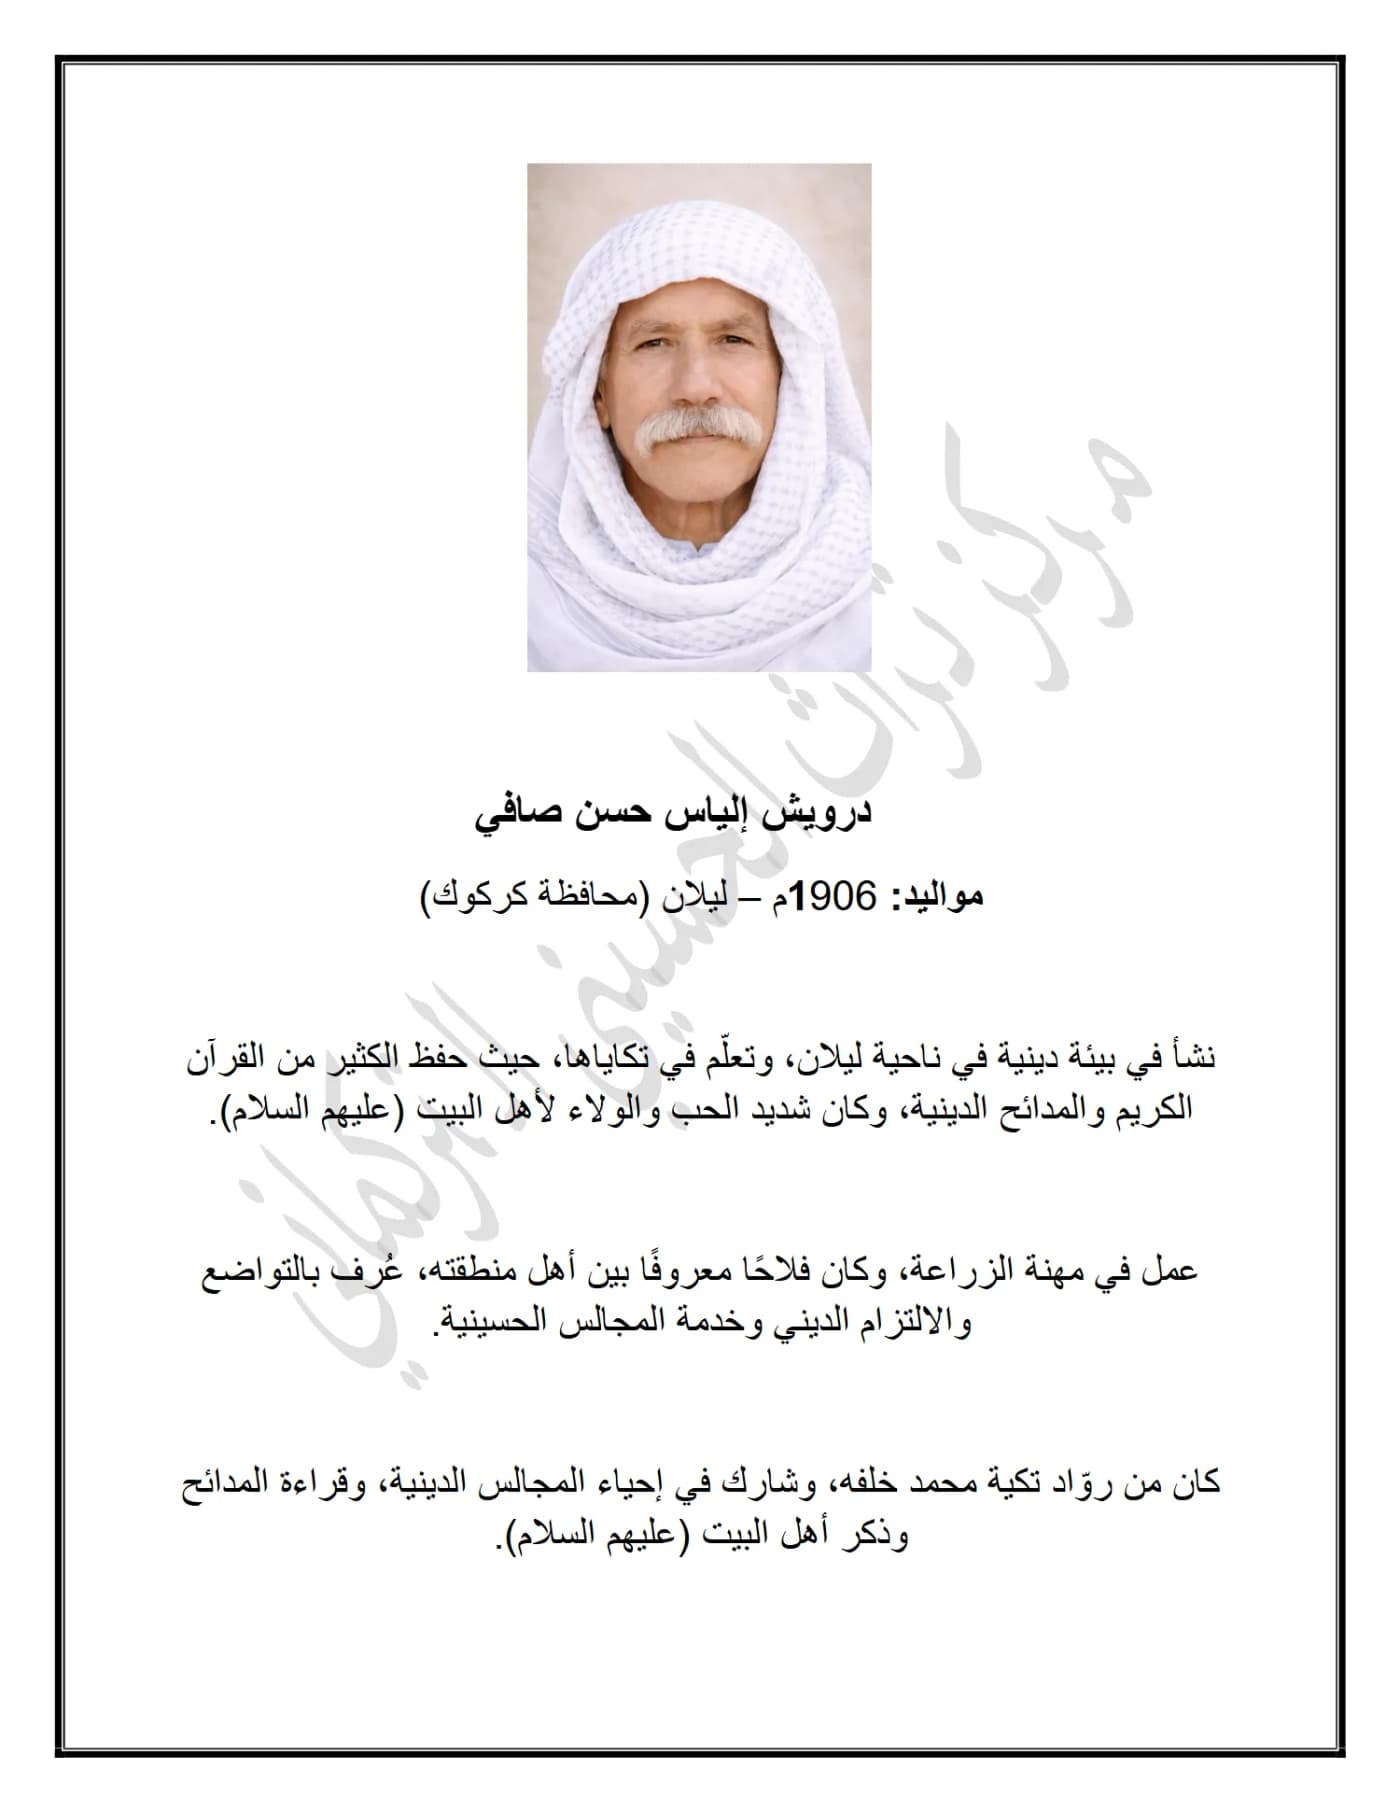 درويش إلياس حسن صافي
مواليد: 1906م – ليلان (محافظة كركوك)
نشأ في بيئة دينية في ناحية ليلان، وتعلّم في تكاياها، حيث حفظ الكثير من القرآن
الكريم والمدائح الدينية، وكان شديد الحب والولاء لأهل البيت (عليهم السلام).
عمل في مهنة الزراعة، وكان فلاحًا معروفًا بين أهل منطقته، عُرف بالتواضع
والالتزام الديني وخدمة المجالس الحسينية.
كان من روّاد تكية محمد خلفه، وشارك في إحياء المجالس الدينية، وقراءة المدائح
وذكر أهل البيت (عليهم السلام).
مركز تراث الحسيني التركماني